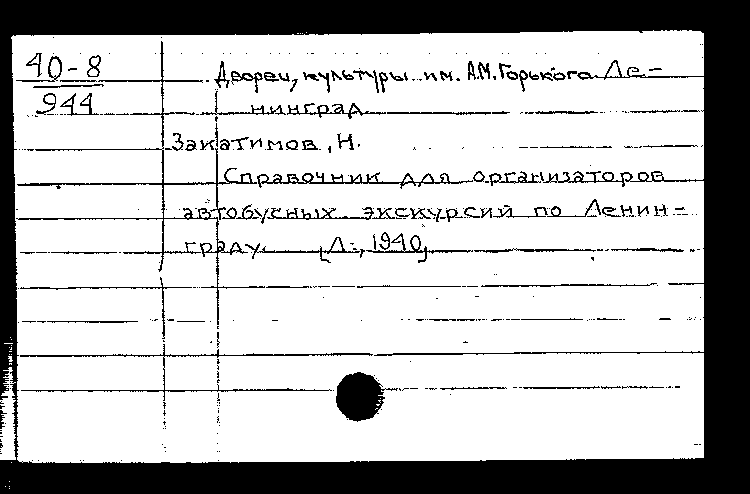 40-8
944
Дворец культуры им. А.М. Горького. Ле-
нинград.
Закатимов, Н.
Справочник для организаторов
автобусных экскурсий по Ленин-
граду. [Л., 1940]